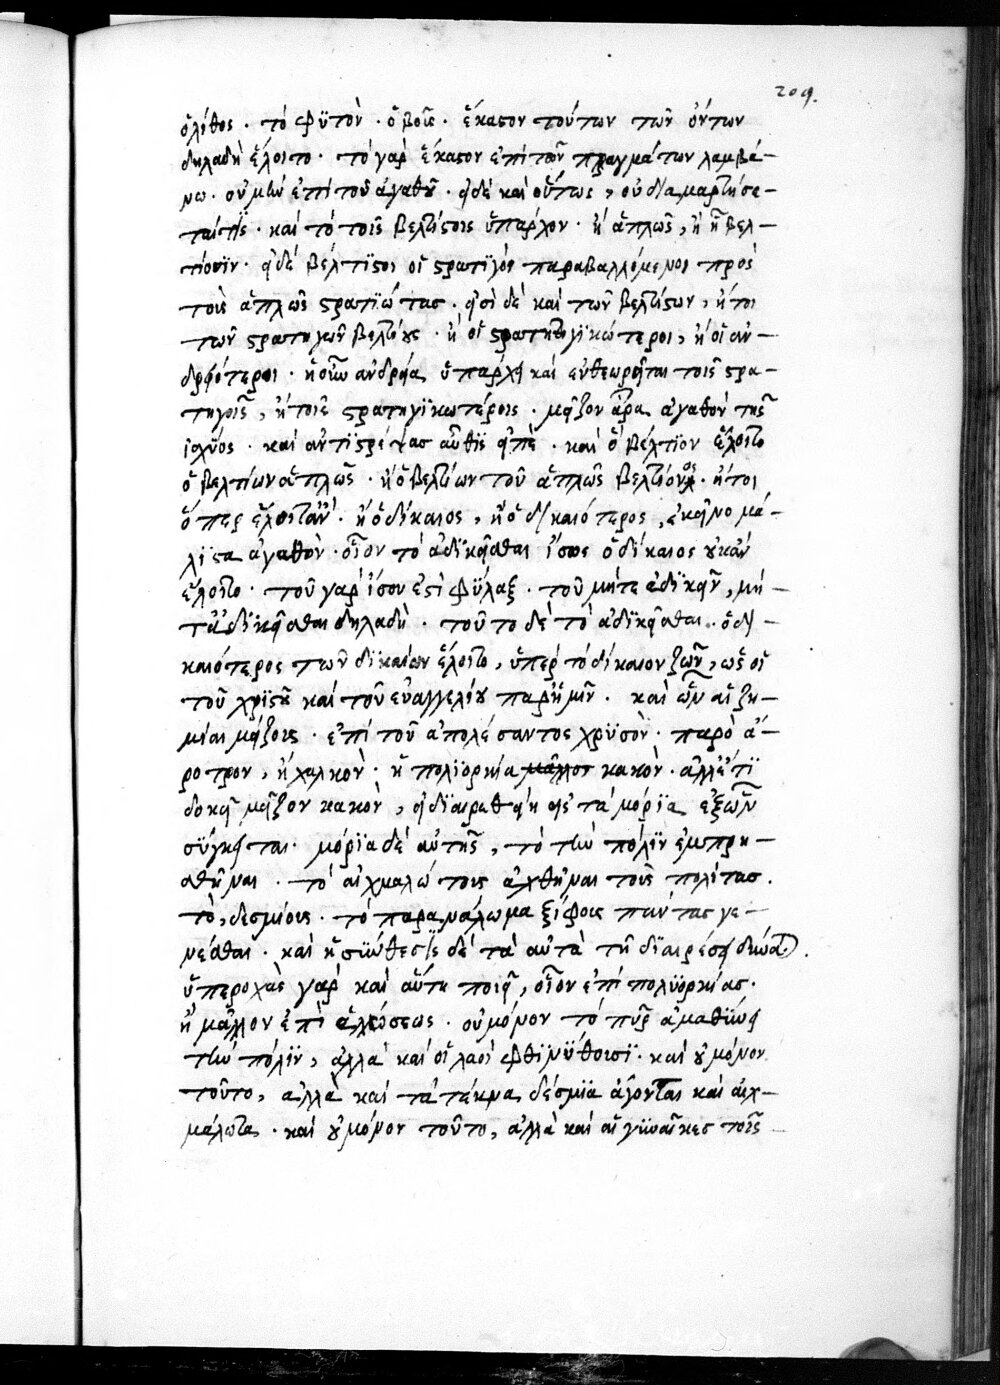 209.
ὁ λίθος · τὸ φϋτὸν · ὁ βοῦς · ἕκαστον τούτων τῶν ὄντων
δηλαδὴ ἕλοιτο · τὸ γὰρ ἕκαστον ἐπὶ τῶν πραγμάτων λαμβά–
νω · οὐ μὴν ἐπὶ τοῦ ἀγαθοῦ · εἰ δὲ καὶ οὕτως, οὐ διαμαρτήσε–
ταί τϊς · καὶ τὸ τοῖς βελτίστοις ὑπάρχον · ἢ ἁπλῶς, ἢ ᾗ βελ–
τίοσϊν · εἰ δὲ βέλτϊστοι οἱ στρατϊγοὶ παραβαλλόμενοι πρὸς
τοὺς ἁπλῶς στρατϊώτας · εἰσὶ δὲ καὶ τῶν βελτίστων, ἤτοι
τῶν στρατηγῶν βελτίους · ἢ οἱ στρατηγϊκώτεροι, ἢ οἱ ἀν–
δρειότεροι · ἡ οὖν ἀνδρεία ὑπάρχει καὶ ἐνθεωρεῖται τοῖς στρα–
τηγοῖς, ἤτοι τοῖς στρατηγϊκωτέροις · μεῖζον ἄρα ἀγαθὸν τῆς
ἰσχύος · καὶ ἀντϊστρέψας αὖθϊς εἰπὲ · καὶ ὃ βέλτϊον ἕλοιτο
ὁ βελτίων ἁπλῶς · ἢ ὁ βελτίων τοῦ ἁπλῶς βελτίονος · ἤτοι
ὅπερ ἕλοιτ' ἂν · ἢ ὁ δίκαιος, ἢ ὁ δικαιότερος, ἐκεῖνο μά–
λϊστα ἀγαθὸν · οἷον τὸ ἀδϊκεῖσθαι ἴσως ὁ δίκαιος οὐκ ἂν
ἕλοιτο · τοῦ γὰρ ἴσου ἐστὶ φύλαξ · τοῦ μήτε ἀδϊκεῖν, μή–
τ' ἀδϊκεῖσθαι δηλαδὴ · τοῦτο δὲ τὸ ἀδϊκεῖσθαι · ὁ δι–
καιότερος τῶν δϊκαίων ἕλοιτο, ὑπὲρ τὸ δίκαιον ζῶν, ὡς οἱ
τοῦ χρϊστοῦ καὶ τοῦ εὐαγγελίου παρ' ἡμῖν · καὶ ὧν αἱ ζη–
μίαι μείζους · ἐπὶ τοῦ ἀπολέσαντος χρϋσὸν · παρὸ ἄ–
ροτρον, ἢ χαλκὸν · ἡ πολϊορκία μᾶλλον κακὸν · ἀλλ' ἔτϊ
δοκεῖ μεῖζον κακὸν, εἰ δϊαιρεθείη εἰς τὰ μόρϊα ἐξ ὧν
σύγκειται · μόρϊα δὲ αὐτῆς, τὸ τὴν πόλϊν ἐμπρη–
σθῆναι · τὸ αἰχμαλώτους ἀχθῆναι τοὺς πολίτας ·
τὸ, δεσμίους · τὸ παρανάλωμα ξίφους πάντας γε–
νέσθαι · καὶ ἡ σύνθεσϊς δὲ τὰ αὐτὰ τῇ δϊαιρέσει δύναται ·
ὑπεροχὰς γὰρ καὶ αὕτη ποιεῖ, οἷον ἐπὶ πολϊορκίας ·
ἢ μᾶλλον ἐπὶ ἁλώσεως · οὐ μόνον τὸ πῦρ ἀμαθύνει
τὴν πόλϊν, ἀλλὰ καὶ οἱ λαοὶ φθϊνύθουσϊ · καὶ οὐ μόνον
τοῦτο, ἀλλὰ καὶ τὰ τέκνα δέσμϊα ἄγονται καὶ αἰχ–
μάλωτα · καὶ οὐ μόνον τοῦτο, ἀλλὰ καὶ αἱ γυναῖκες τοῖς –